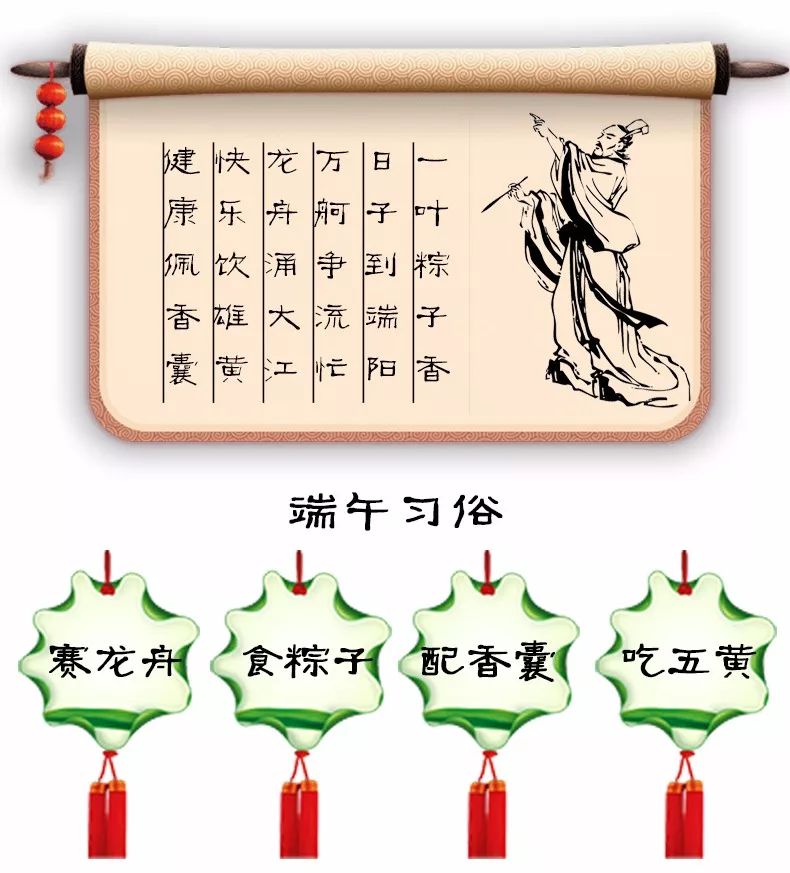 一叶粽子香
日子到端阳
万舸争流忙
龙舟涌大江
快乐饮雄黄
健康佩香囊
端午习俗
赛龙舟
食粽子
配香囊
吃五黄